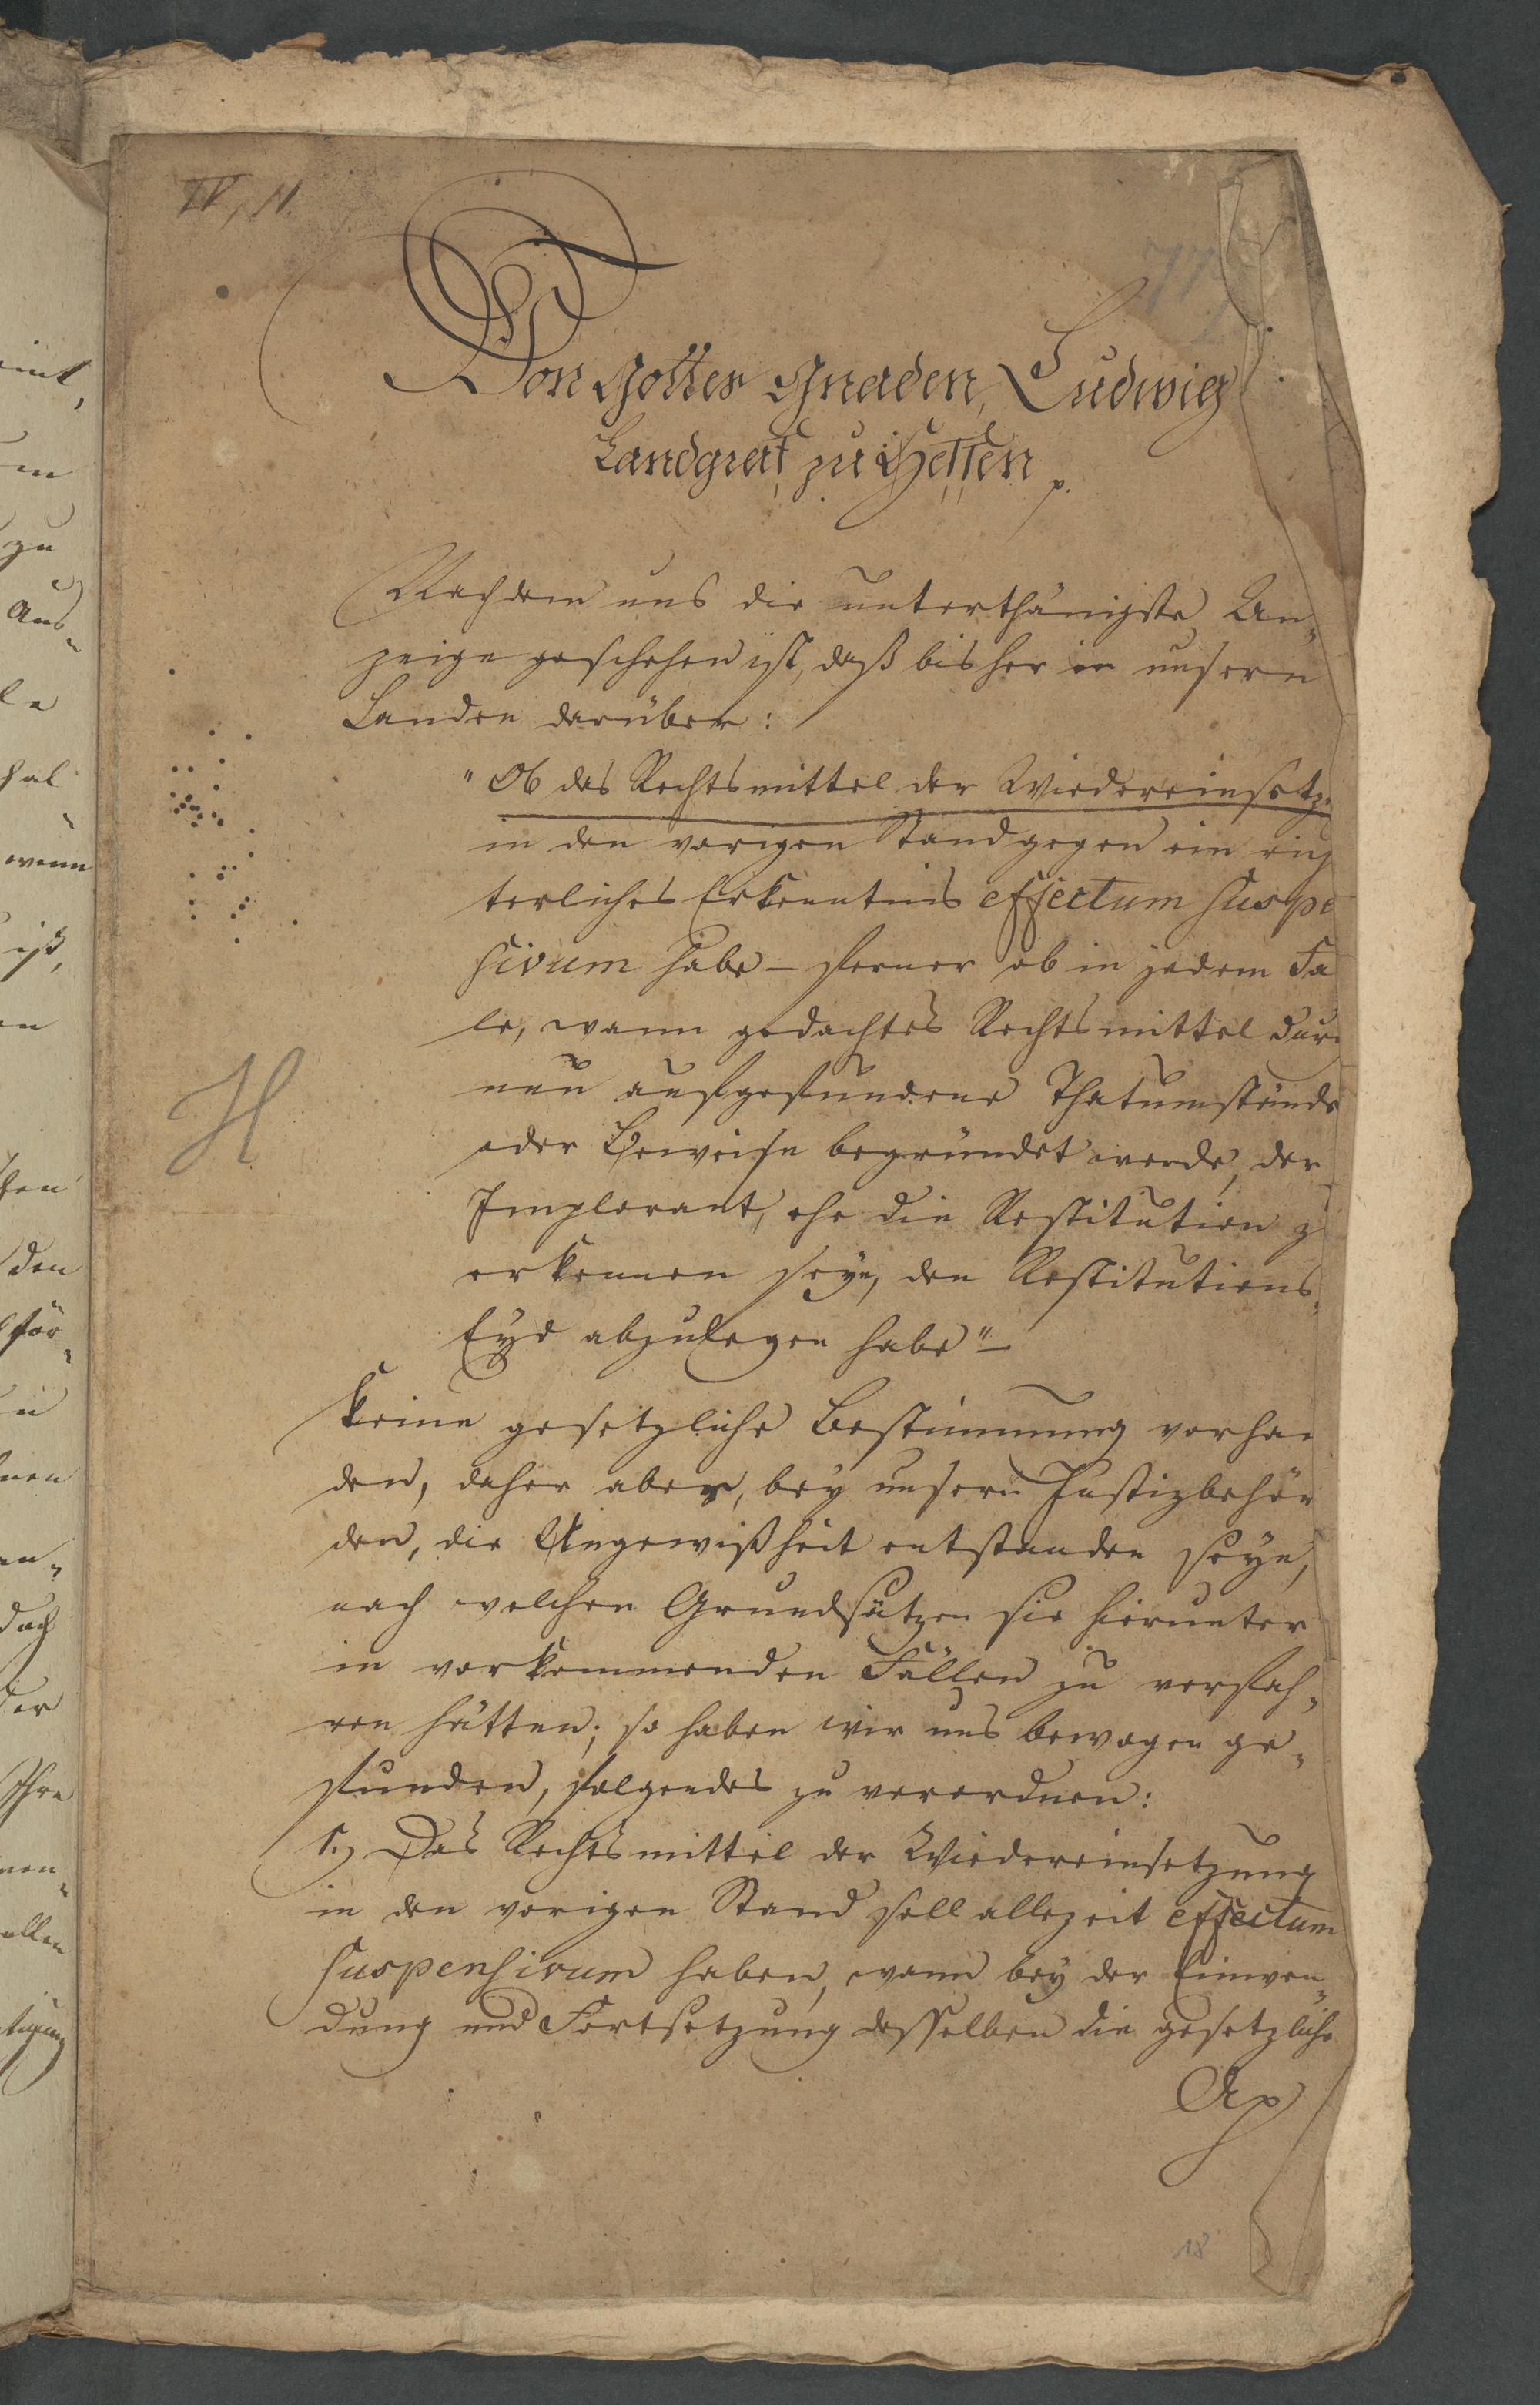 IV, 11.
77
Von Gottes Gnaden, Ludwig
Landgraf zu Hessen p.
Nachdem uns die unterthänigste An„
zeige geschehen ist, daß bisher in unsern
Landen darüber:
"Ob das Rechtsmittel der Wiedereinsetz„
in den vorigen Stand gegen ein rich
terliches Erkenntnis effectum suspe
sivum habe – ferner ob in jedem Fa
le, wann gedachtes Rechtsmittel durc
neu aufgefundene Thatumstände
oder Beweise begründet werde, der
H
Implorant, ehe die Restitution z
erkennen seye, den Restitutions„
Eyd abzulegen habe" –
keine gesetzliche Bestimmung vorhan
den, daher aber, bey unsern Justizbehör
den, die Ungewißheit entstanden seye,
nach welchen Grundsätzen sie hierunter
in vorkommenden Fällen zu verfah„
ren hätten; so haben wir uns bewogen ge„
funden, folgendes zu verordnen:
1.) Das Rechtsmittel der Wiedereinsetzung
in den vorigen Stand soll allezeit effectum
suspensivum haben, wann bey der Einwen„
dung und Fortsetzung desselben die gesetzliche
18